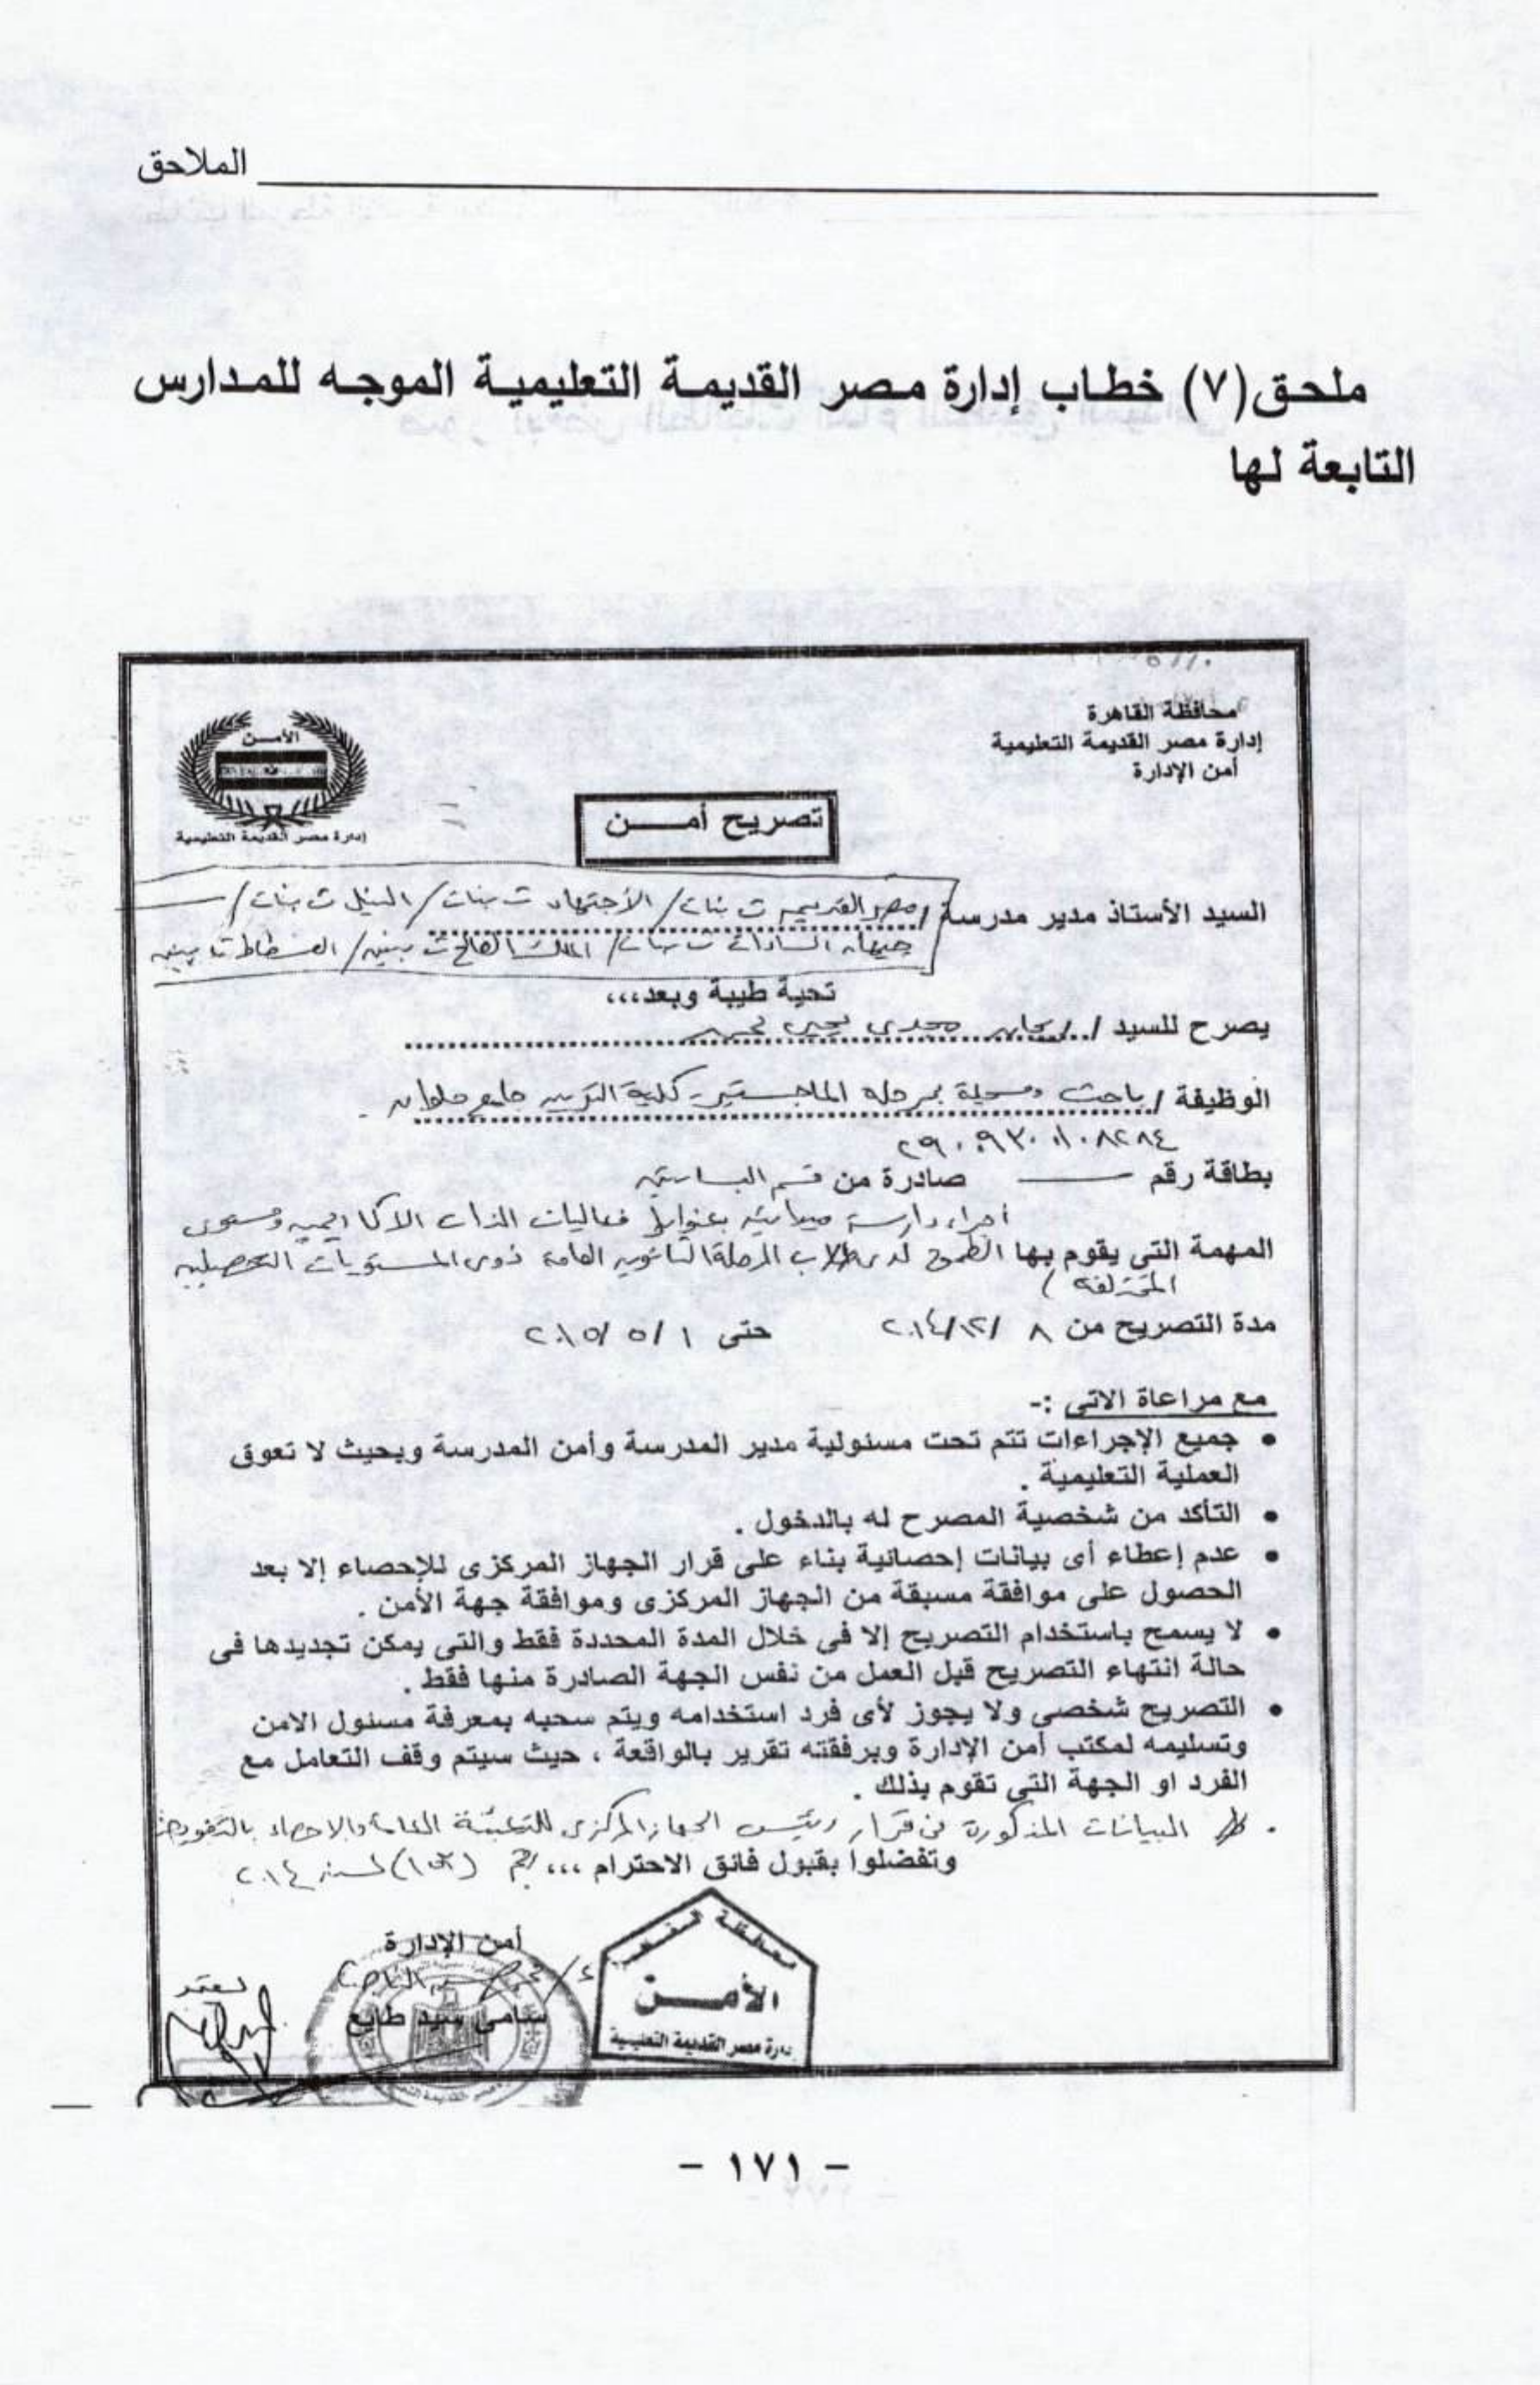 الملاحق
ملحق(٧) خطاب إدارة مصر القديمة التعليمية الموجه للمدارس
التابعة لها
محافظة القاهرة
إدارة مصر القديمة التعليمية
أمن الإدارة
الأمن
إدارة مصر القديمة التعليمية
تصريح أمن
السيد الأستاذ مدير مدرسة / مصر القديمه ث بنات / الأجتهاد ث بنات / النيل ث بنات /
جيهان السادات ث بنات / الملك الصالح ث بنين / الفسطاط ث بنين
تحية طيبة وبعد،،،
يصرح للسيد / مجدى يحيى
الوظيفة / باحث ومسجلة بمرحلة الماجستير - كلية التربيه جامعه حلوان .
٢٩٠٠٩٣٠٠١٠٨٢٨٤
بطاقة رقم صادرة من قسم البساتين
أجراء دارسة ميدانيه بعنوان فعاليات الذات الاكاديميه ومستوى
المهمة التى يقوم بها الطموح لدى طلاب المرحلة الثانويه العامة ذوى المستويات التحصيليه
المختلفه )
مدة التصريح من ٨ /١٢/ ٢٠١٤ حتى ١ / ٥ /٢٠١٥
مع مراعاة الاتى :-
• جميع الإجراءات تتم تحت مسئولية مدير المدرسة وأمن المدرسة وبحيث لا تعوق
العملية التعليمية .
• التأكد من شخصية المصرح له بالدخول .
• عدم إعطاء أى بيانات إحصائية بناء على قرار الجهاز المركزى للإحصاء إلا بعد
الحصول على موافقة مسبقة من الجهاز المركزى وموافقة جهة الأمن .
• لا يسمح باستخدام التصريح إلا فى خلال المدة المحددة فقط والتى يمكن تجديدها فى
حالة انتهاء التصريح قبل العمل من نفس الجهة الصادرة منها فقط .
• التصريح شخصى ولا يجوز لأى فرد استخدامه ويتم سحبه بمعرفة مسئول الامن
وتسليمه لمكتب أمن الإدارة وبرفقته تقرير بالواقعة ، حيث سيتم وقف التعامل مع
الفرد او الجهة التى تقوم بذلك .
البيانات المذكورة فى قرار رئيس الجهاز المركزى للتعبئة العامة والاحصاء بالتفويض
وتفضلوا بقبول فائق الاحترام ،،، رقم لسنة ٢٠١٤
أمن الإدارة
سامى سيد طايع
يعتمد
محافظة القاهرة
الأمن
إدارة مصر القديمة التعليمية
- ١٧١ -